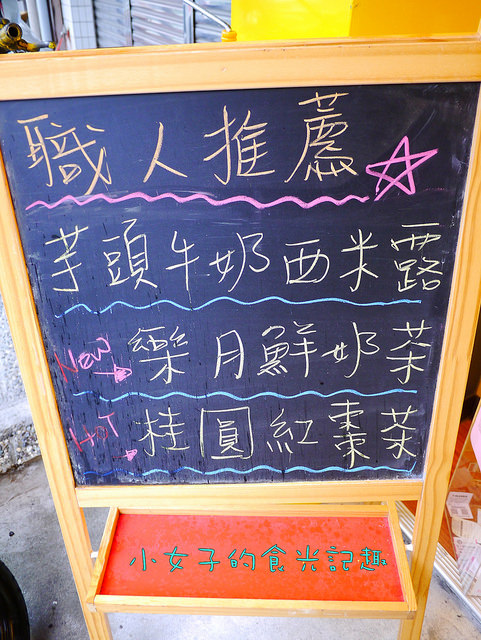 職人推薦
芋頭牛奶西米露
New 樂月鮮奶茶
HOT 桂圓紅棗茶
小女子的食光記趣